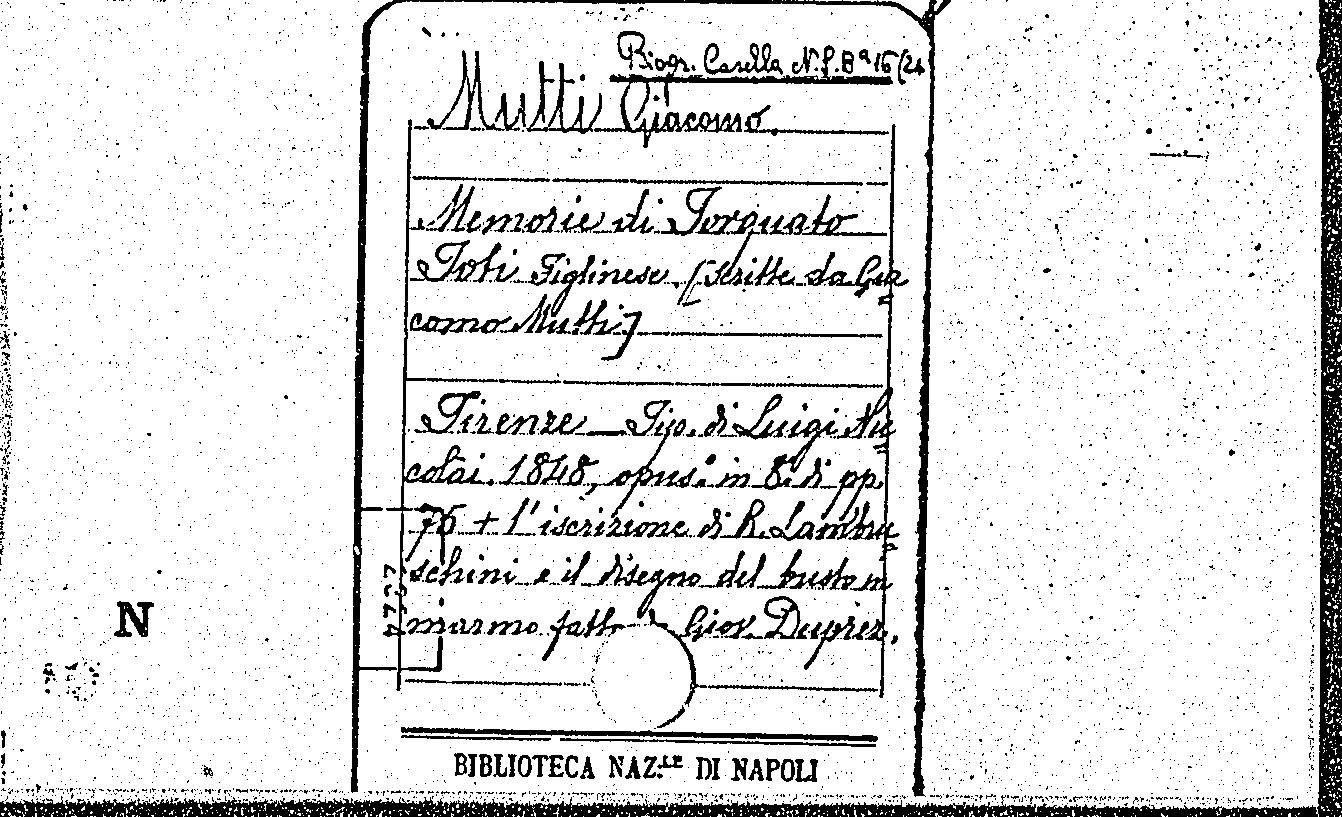 Biogr. Casella N.f. Bª 16 (24
Mutti Giacomo.
Memorie di Torquato
Toti Figlinese. [Scritte da Gia=
como Mutti]
Firenze — Tip. di Luigi Ni=
colai. 1848, opus.º in 8.º di pp.
76 + l'iscrizione di R. Lambru=
schini e il disegno del busto in
marmo fatto Giov. Duprez.
N
BIBLIOTECA NAZ.LE DI NAPOLI